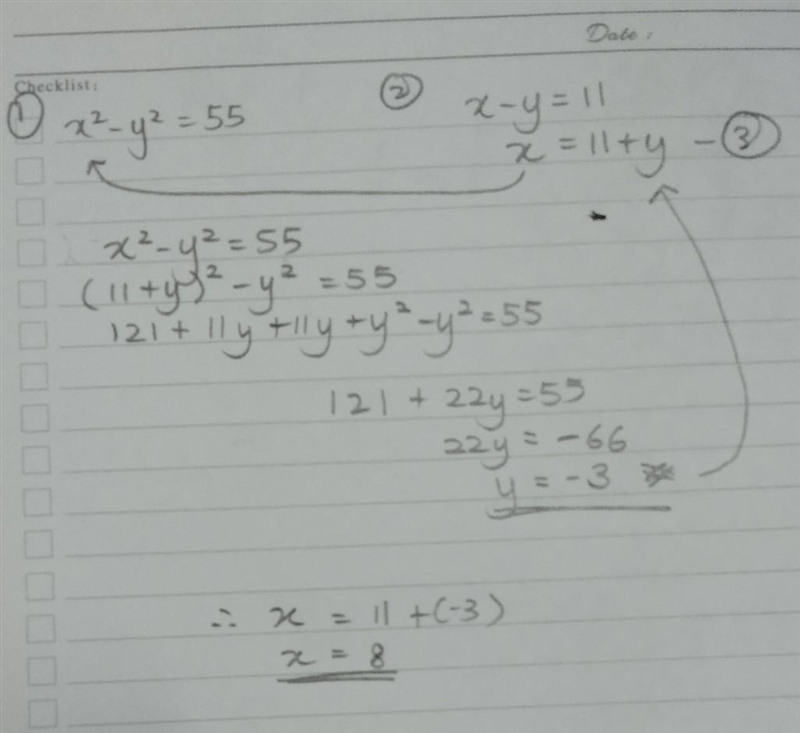 Date :
Checklist:
① x² - y² = 55
② x - y = 11
x = 11 + y - ③
x² - y² = 55
(11 + y)² - y² = 55
121 + 11y + 11y + y² - y² = 55
121 + 22y = 55
22y = -66
y = -3
∴ x = 11 + (-3)
x = 8